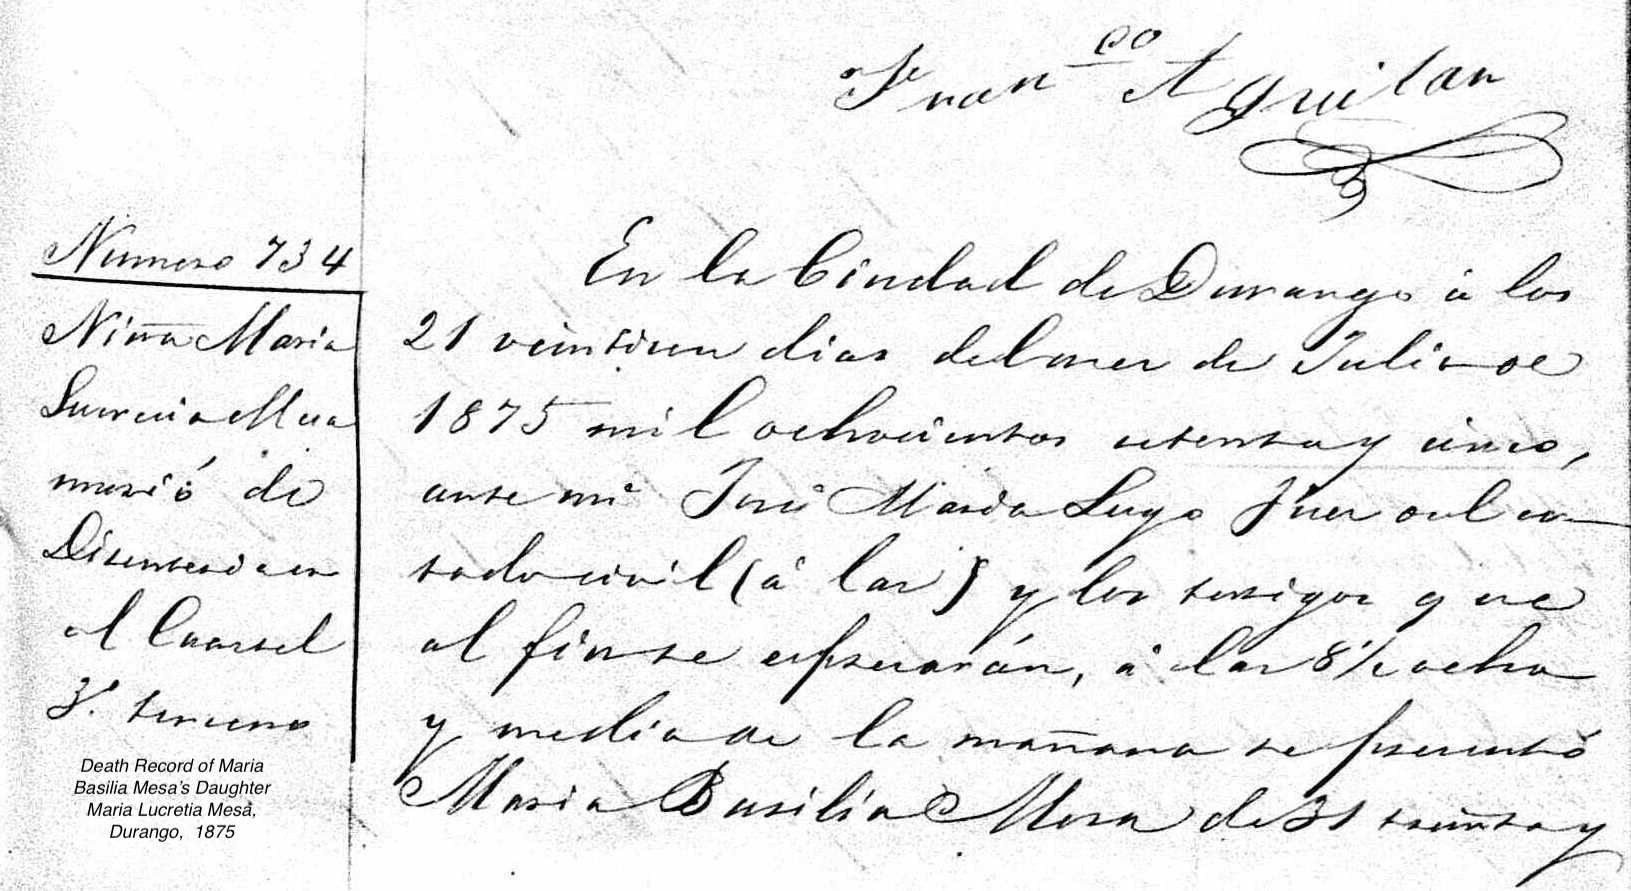 Fran co Aguilar
Número 734
Niña Maria
Lucrecia Mesa
murió de
Disenteria en
el Cuartel
3º. tercero
Death Record of Maria
Basilia Mesa's Daughter
Maria Lucretia Mesa,
Durango, 1875
En la Ciudad de Durango á los
21 veintiun dias del mes de Julio de
1875 mil ochocientos setenta y cinco,
ante mi José Maria Lugo Juez del es-
tado civil (á las) y los testigos que
al fin se espresarán, á las 8½ ocho
y media de la mañana se presentó
Maria Basilia Mesa de 31 treinta y